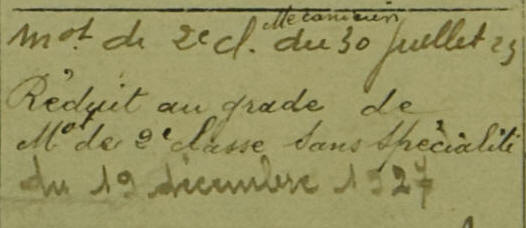 Mécanicien
Mot. de 2e cl. du 30 Juillet 25
Réduit au grade de
Mot de 2e classe sans spécialité
du 19 décembre 1927